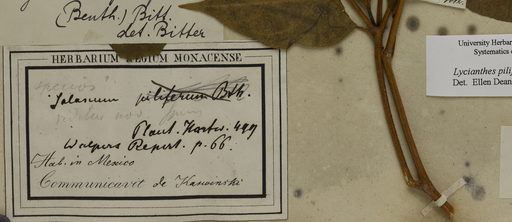 (Benth.) Bitt.
det. Bitter
HERBARIUM REGIUM MONACENSE.
Solanum piliferum Bth.
Plant. Hartw. 499
Walpers Repert. p. 66.
Hab. in Mexico
Communicavit de Karwinski
University Herbar
Systematics
Lycianthes pili
Det. Ellen Dean